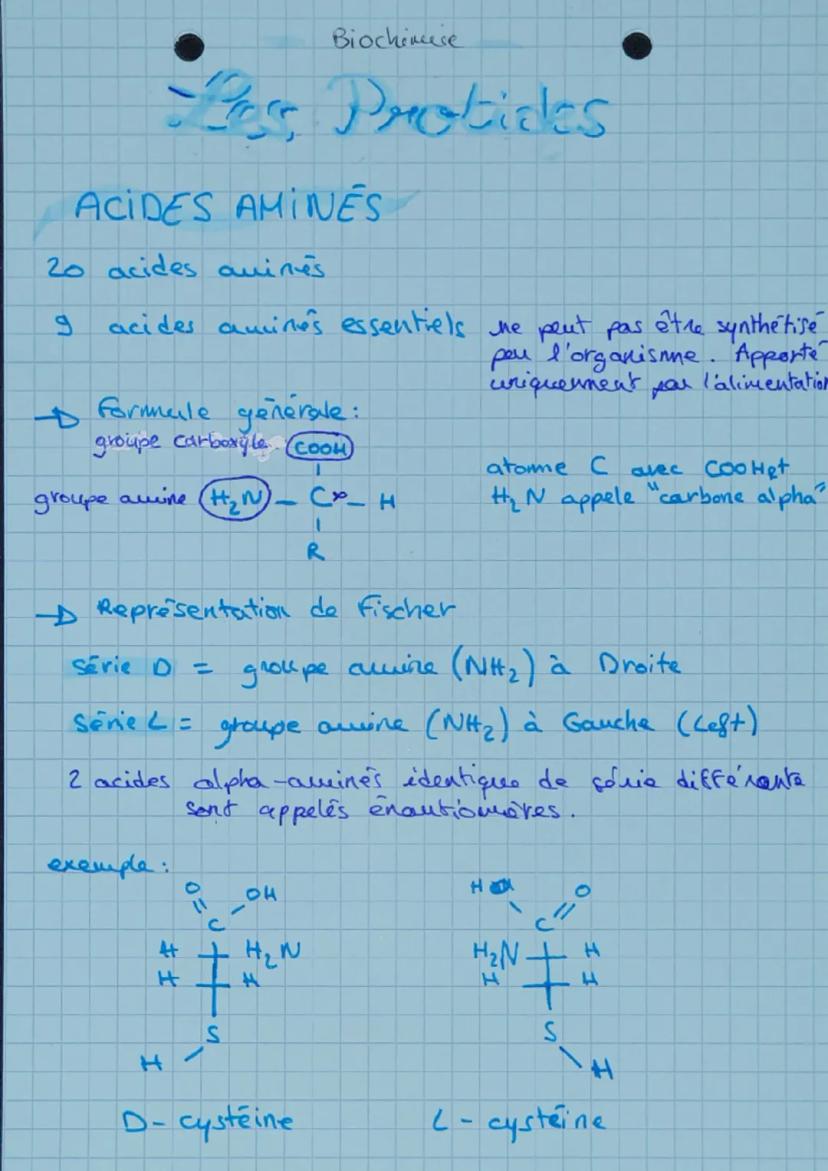 Biochimie
Les Protides
ACIDES AMINÉS
20 acides aminés
9 acides aminés essentiels
ne peut pas être synthétisé
par l'organisme. Apporté
uniquement par l'alimentation
→ Formule générale:
groupe carboxyle COOH
groupe amine H₂N – Cα – H
R
atome C avec COOH et
H₂N appelé "carbone alpha"
→ Représentation de Fischer
série D = groupe amine (NH₂) à Droite
série L = groupe amine (NH₂) à Gauche (Left)
2 acides alpha-aminés identique de série différente
sont appelés énantiomères.
exemple:
O OH
C
H H₂N
H H
S
H
D- cystéine
HO O
C
H₂N H
H H
S
H
L- cystéine